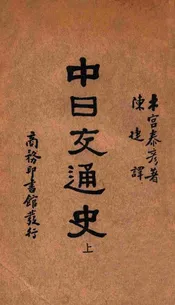 木宮泰彦著
陳捷譯
中日交通史
上
商務印書館發行